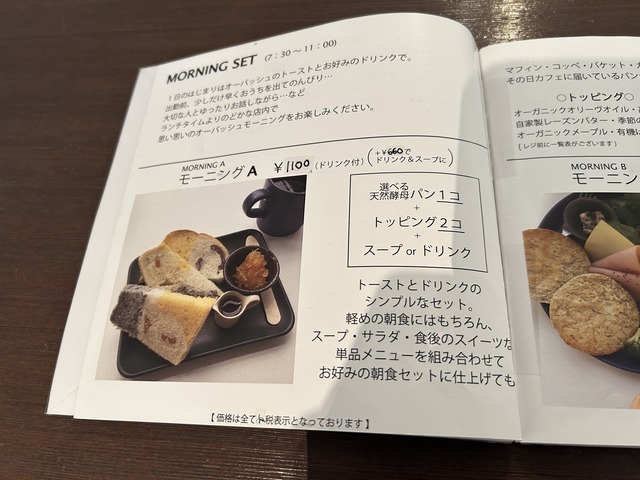 MORNING SET (7:30～11:00)
1日のはじまりはオーバッシュのトーストとお好みのドリンクで。
出勤前、少しだけ早くおうちを出てのんびり…
大切な人とゆったりお話しながら……など
ランチタイムよりのどかな店内で
思い思いのオーバッシュモーニングをお楽しみください。
MORNING A
モーニング A ¥1100 (ドリンク付) (+¥660で ドリンク&スープに)
選べる
天然酵母パン1コ
+
トッピング2コ
+
スープ or ドリンク
トーストとドリンクの
シンプルなセット。
軽めの朝食にはもちろん、
スープ・サラダ・食後のスイーツな
単品メニューを組み合わせて
お好みの朝食セットに仕上げても
【価格は全て税表示となっております】
マフィン・コッペ・バケット・カ
その日カフェに届いているパン
○トッピング○
オーガニックオリーヴオイル・
自家製レーズンバター・季節の
オーガニックメープル・有機
(レジ前に一覧表がございます)
MORNING B
モーニン